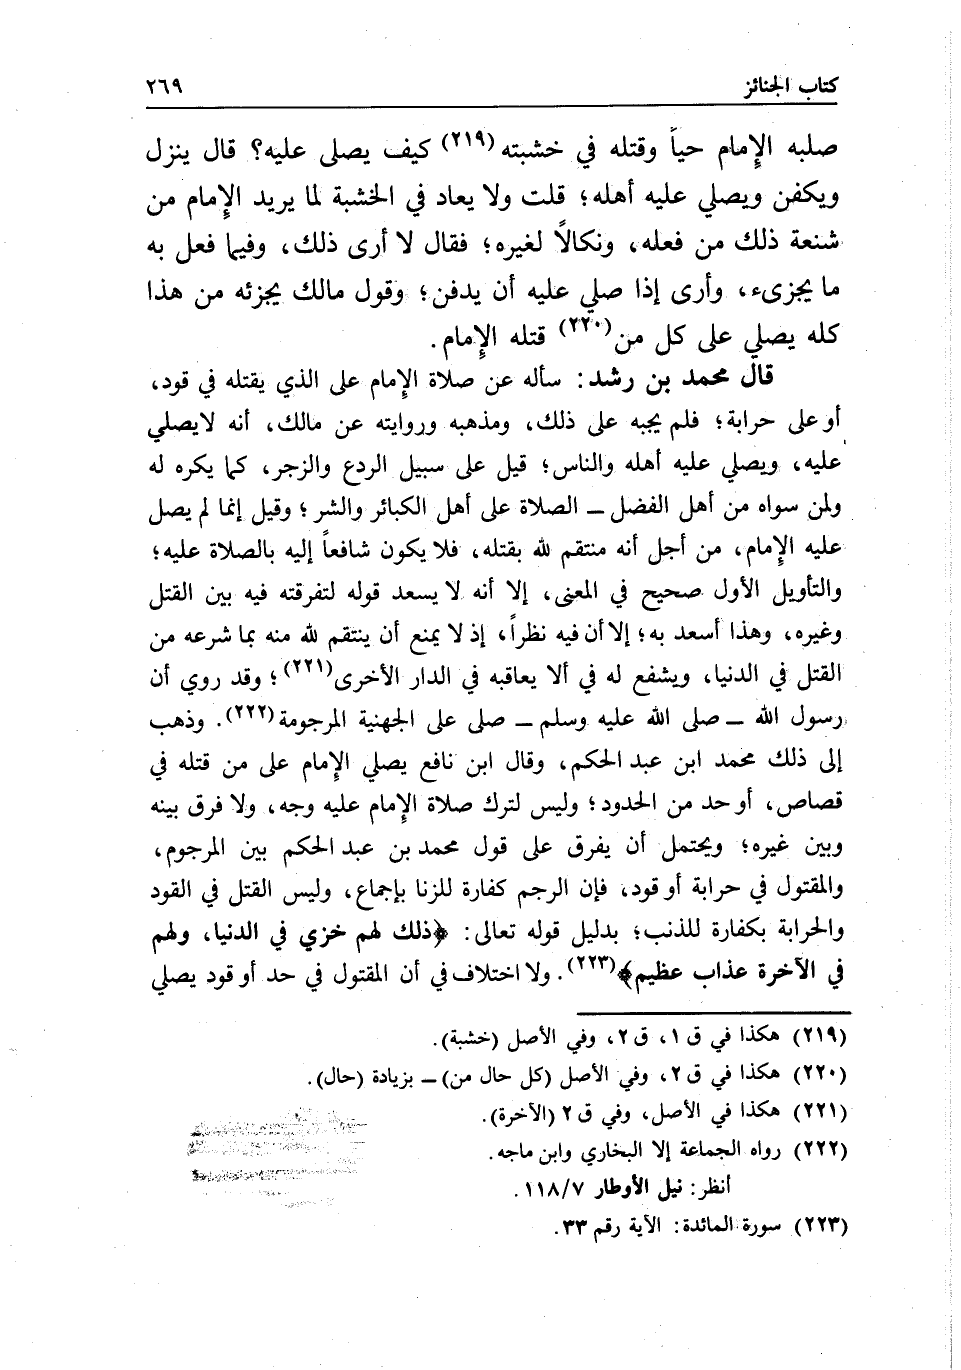 كتاب الجنائز ٢٦٩
صلبه الإمام حياً وقتله في خشبته (٢١٩) كيف يصلى عليه؟ قال ينزل
ويكفن ويصلي عليه أهله؛ قلت ولا يعاد في الخشبة لما يريد الإمام من
شنعة ذلك من فعله، ونكالاً لغيره؛ فقال لا أرى ذلك، وفيما فعل به
ما يجزىء، وأرى إذا صلي عليه أن يدفن؛ وقول مالك يجزئه من هذا
كله يصلي على كل من (٢٢٠) قتله الإمام.
قال محمد بن رشد: سأله عن صلاة الإمام على الذي يقتله في قود،
أو على حرابة؛ فلم يجبه على ذلك، ومذهبه وروايته عن مالك، أنه لا يصلي
عليه، ويصلي عليه أهله والناس؛ قيل على سبيل الردع والزجر، كما يكره له
ولمن سواه من أهل الفضل ــ الصلاة على أهل الكبائر والشر؛ وقيل إنما لم يصل
عليه الإمام، من أجل أنه منتقم لله بقتله، فلا يكون شافعاً إليه بالصلاة عليه؛
والتأويل الأول صحيح في المعنى، إلا أنه لا يسعد قوله لتفرقته فيه بين القتل
وغيره، وهذا أسعد به؛ إلا أن فيه نظراً، إذ لا يمنع أن ينتقم لله منه بما شرعه من
القتل في الدنيا، ويشفع له في ألا يعاقبه في الدار الأخرى (٢٢١)؛ وقد روي أن
رسول الله ــ صلى الله عليه وسلم ــ صلى على الجهنية المرجومة (٢٢٢). وذهب
إلى ذلك محمد ابن عبد الحكم، وقال ابن نافع يصلي الإمام على من قتله في
قصاص، أو حد من الحدود؛ وليس لترك صلاة الإمام عليه وجه، ولا فرق بينه
وبين غيره؛ ويحتمل أن يفرق على قول محمد بن عبد الحكم بين المرجوم،
والمقتول في حرابة أو قود، فإن الرجم كفارة للزنا بإجماع، وليس القتل في القود
والحرابة بكفارة للذنب؛ بدليل قوله تعالى: ﴿ذلك لهم خزي في الدنيا، ولهم
في الآخرة عذاب عظيم﴾ (٢٢٣). ولا اختلاف في أن المقتول في حد أو قود يصلي
(٢١٩) هكذا في ق ١، ق ٢، وفي الأصل (خشبة).
(٢٢٠) هكذا في ق ٢، وفي الأصل (كل حال من) ــ بزيادة (حال).
(٢٢١) هكذا في الأصل، وفي ق ٢ (الآخرة).
(٢٢٢) رواه الجماعة إلا البخاري وابن ماجه.
أنظر: نيل الأوطار ١١٨/٧.
(٢٢٣) سورة المائدة: الآية رقم ٣٣.